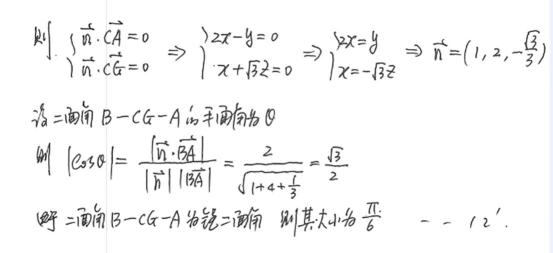 则 { n⃗·CA⃗=0 ⇒ { 2x-y=0 ⇒ { 2x=y ⇒ n⃗=(1,2,-√3/3)
n⃗·CG⃗=0 x+√3z=0 x=-√3z
设二面角 B-CG-A 的平面角为θ
则 |cosθ|= |n⃗·BA⃗| / |n⃗||BA⃗| = 2 / √(1+4+1/3) = √3/2
二面角 B-CG-A 为锐二面角 则其大小为 π/6 --- 12'.